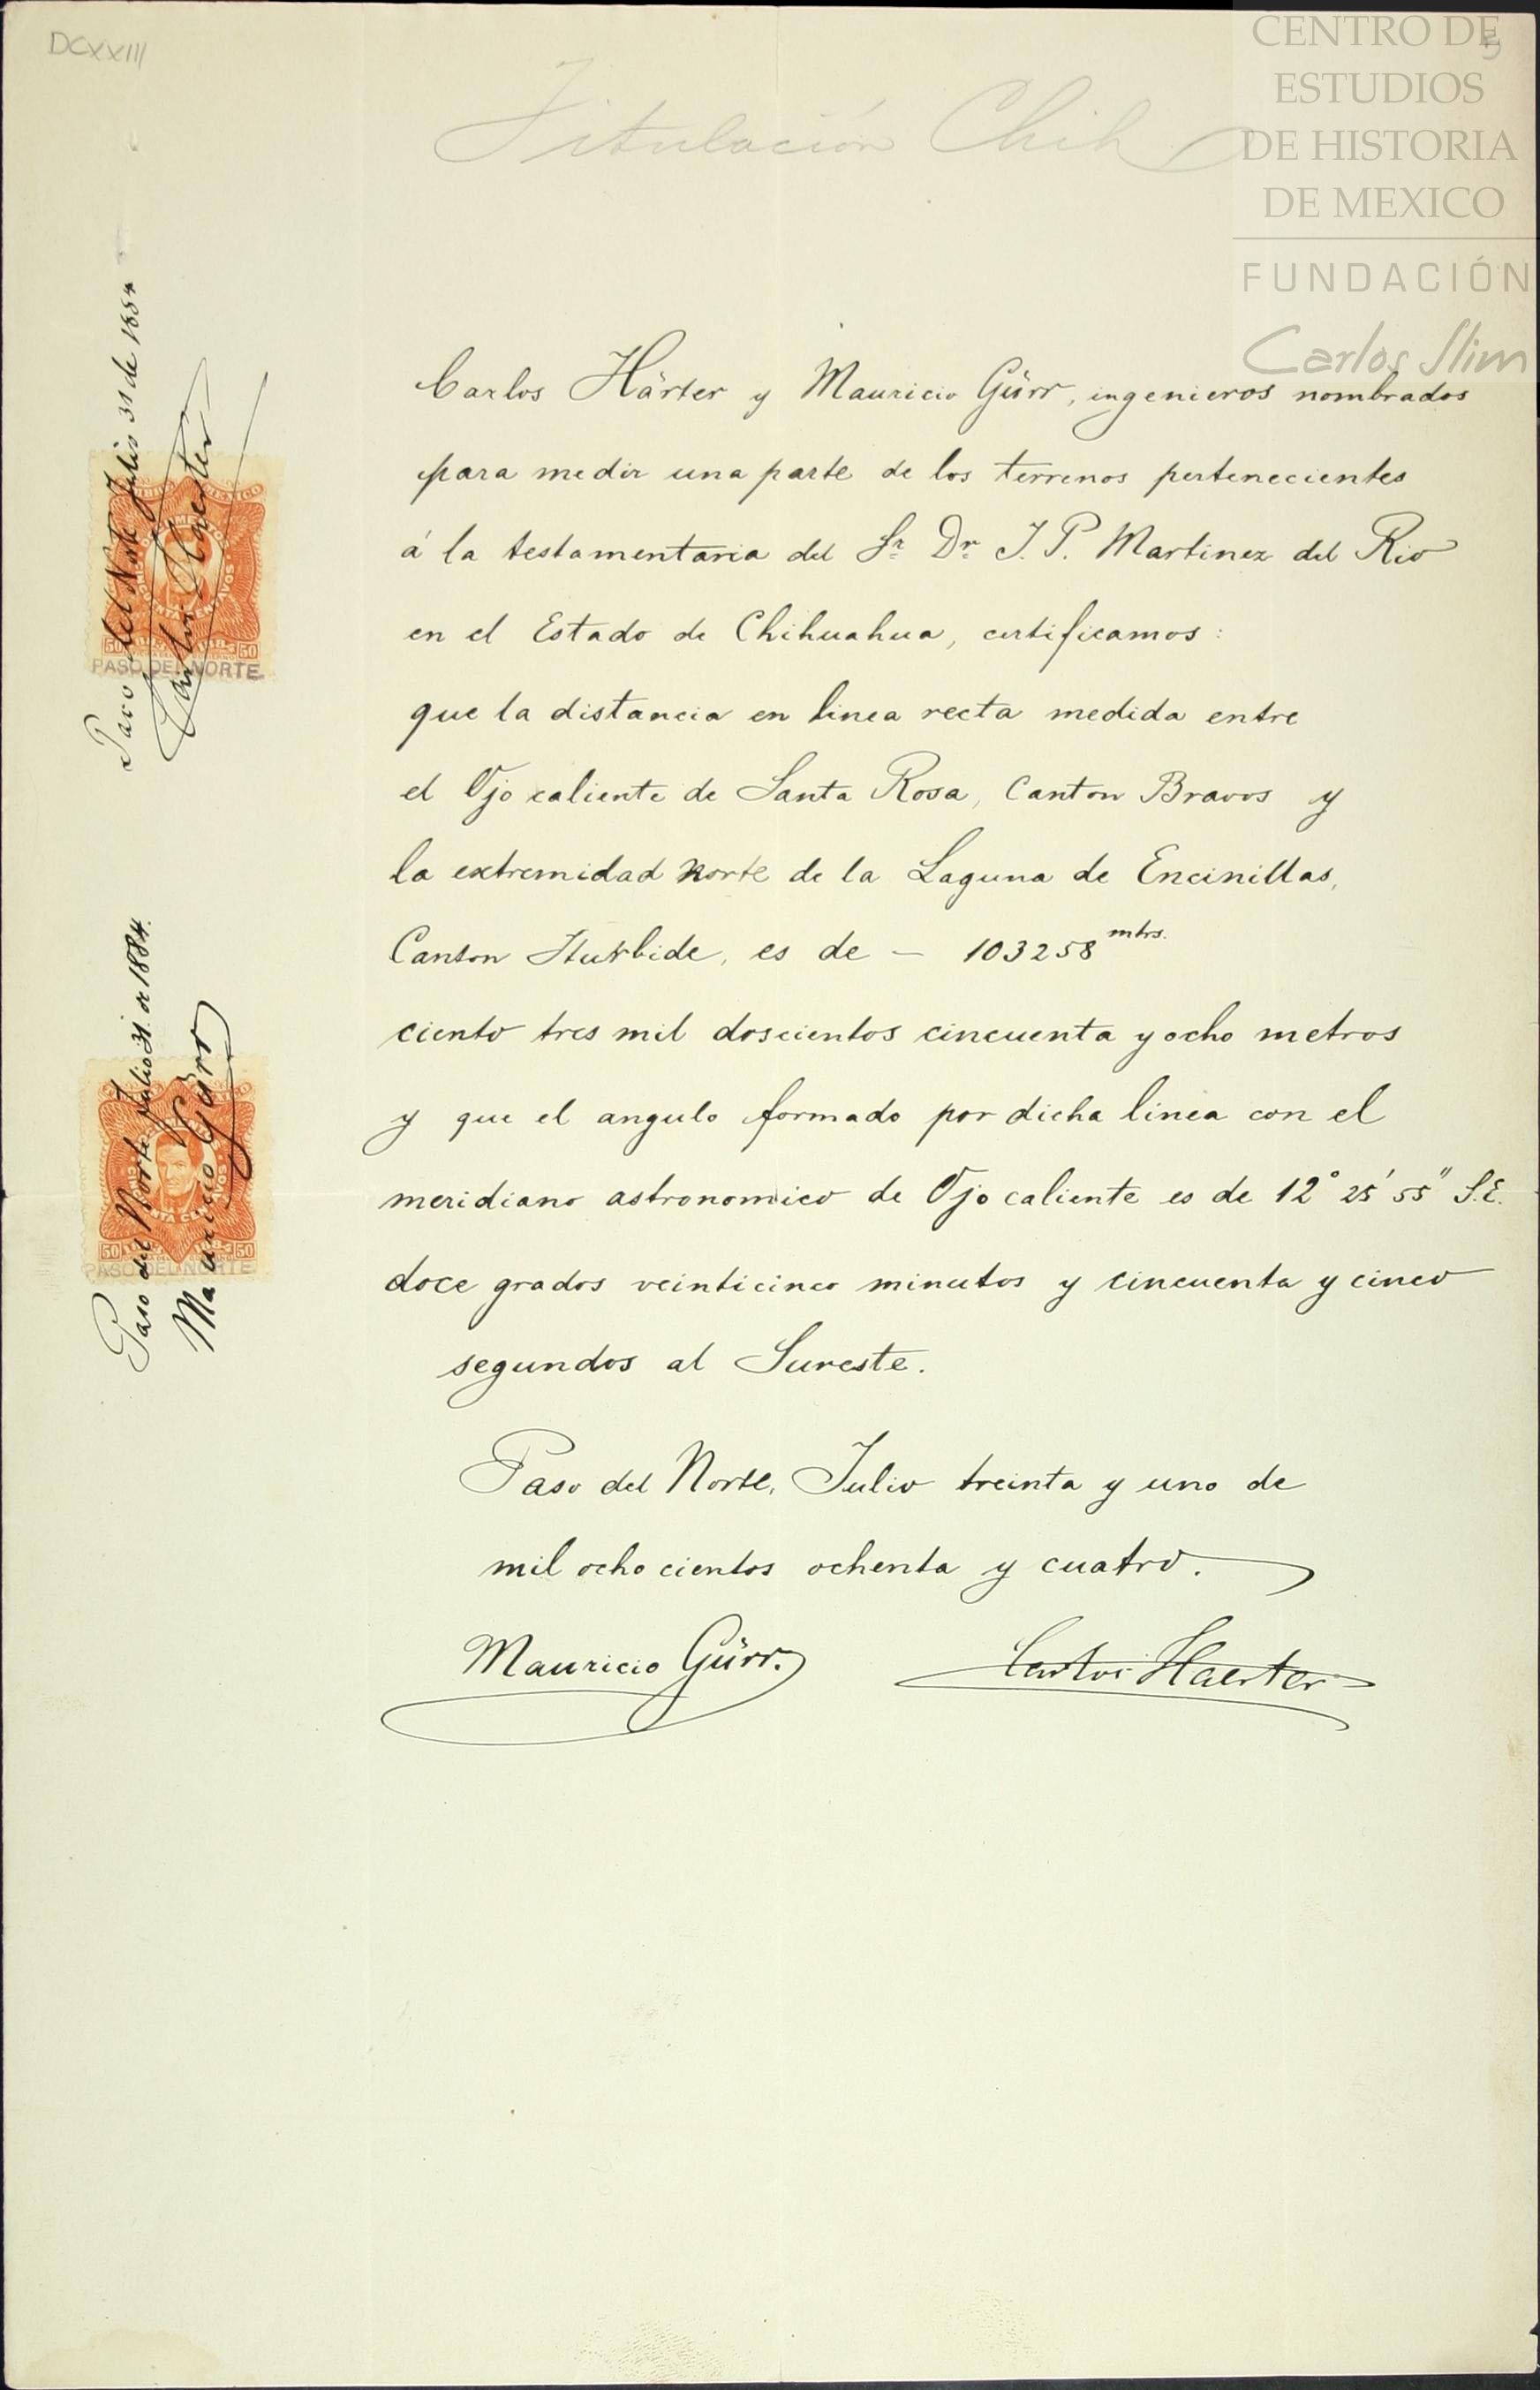 DCXXIII
5
Titulación Chih
CENTRO DE
ESTUDIOS
DE HISTORIA
DE MEXICO
FUNDACIÓN
Carlos Slim
Carlos Härter y Mauricio Gürr, ingenieros nombrados
para medir una parte de los terrenos pertenecientes
á la testamentaria del Sr. Dr. J. P. Martinez del Rio
en el Estado de Chihuahua, certificamos:
que la distancia en linea recta medida entre
el Ojo caliente de Santa Rosa, Canton Bravos y
la extremidad norte de la Laguna de Encinillas,
Canton Iturbide, es de — 103258 mtrs.
ciento tres mil doscientos cincuenta y ocho metros
y que el angulo formado por dicha linea con el
meridiano astronomico de Ojo caliente es de 12° 25' 55" S.E.
doce grados veinticinco minutos y cincuenta y cinco
segundos al Sureste.
Paso del Norte, Julio treinta y uno de
mil ochocientos ochenta y cuatro.
Mauricio Gürr.
Carlos Haerter
Paso del Norte Julio 31 de 1884
Carlos Haerter
50 50
PASO DEL NORTE
Paso del Norte Julio 31. de 1884.
Mauricio Gürr
50 1884 50
PASO DEL NORTE